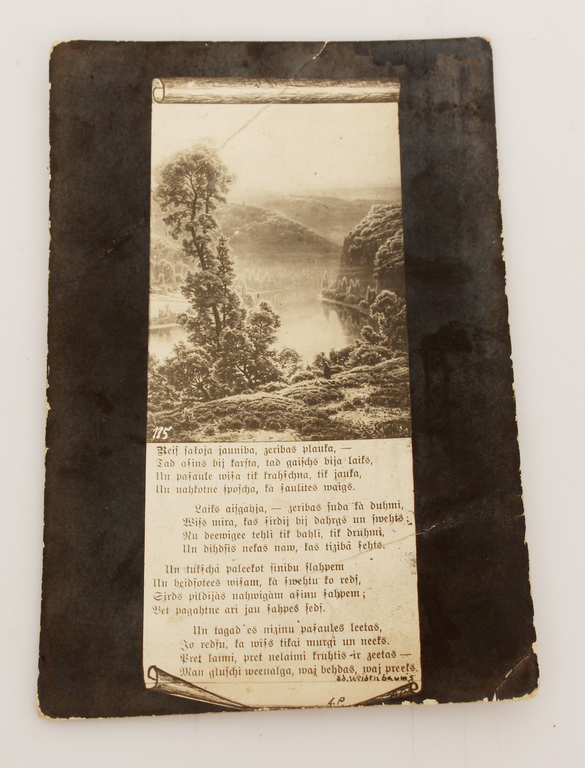 115
Reiſ ſakoja jauniba, zeribas plauka, —
Tad aſins bij karſta, tad gaiſchs bija laiks,
Un paſaule wiſa tik krahſchna, tik jauka,
Un nahkotne ſpoſcha, kà ſaulites waigs.
Laiks aiſgahja, — zeribas ſuda kà duhmi,
Wiſs mira, kas ſirdij bij dahrgs un ſwehts;
Nu deewigee tehli tik bahli, tik druhmi,
Un dihdſis nekas naw, kas tizibâ ſehts.
Un tukſchâ paleekot ſinibu ſlahpem
Un beidſotees wiſam, kà ſwehtu ko redſ,
Sirds pildijâs nahwigàm aſinu ſahpem;
Bet pagahtne ari jau ſahpes ſedſ.
Un tagad es nizinu paſaules leetas,
Jo redſu, ka wiſs tikai murgi un neeks.
Pret laimi, pret nelaimi kruhtis ir zeetas —
Man gluſchi weenalga, waj behdas, waj preeks.
Ed. Weidenbaums
A.P